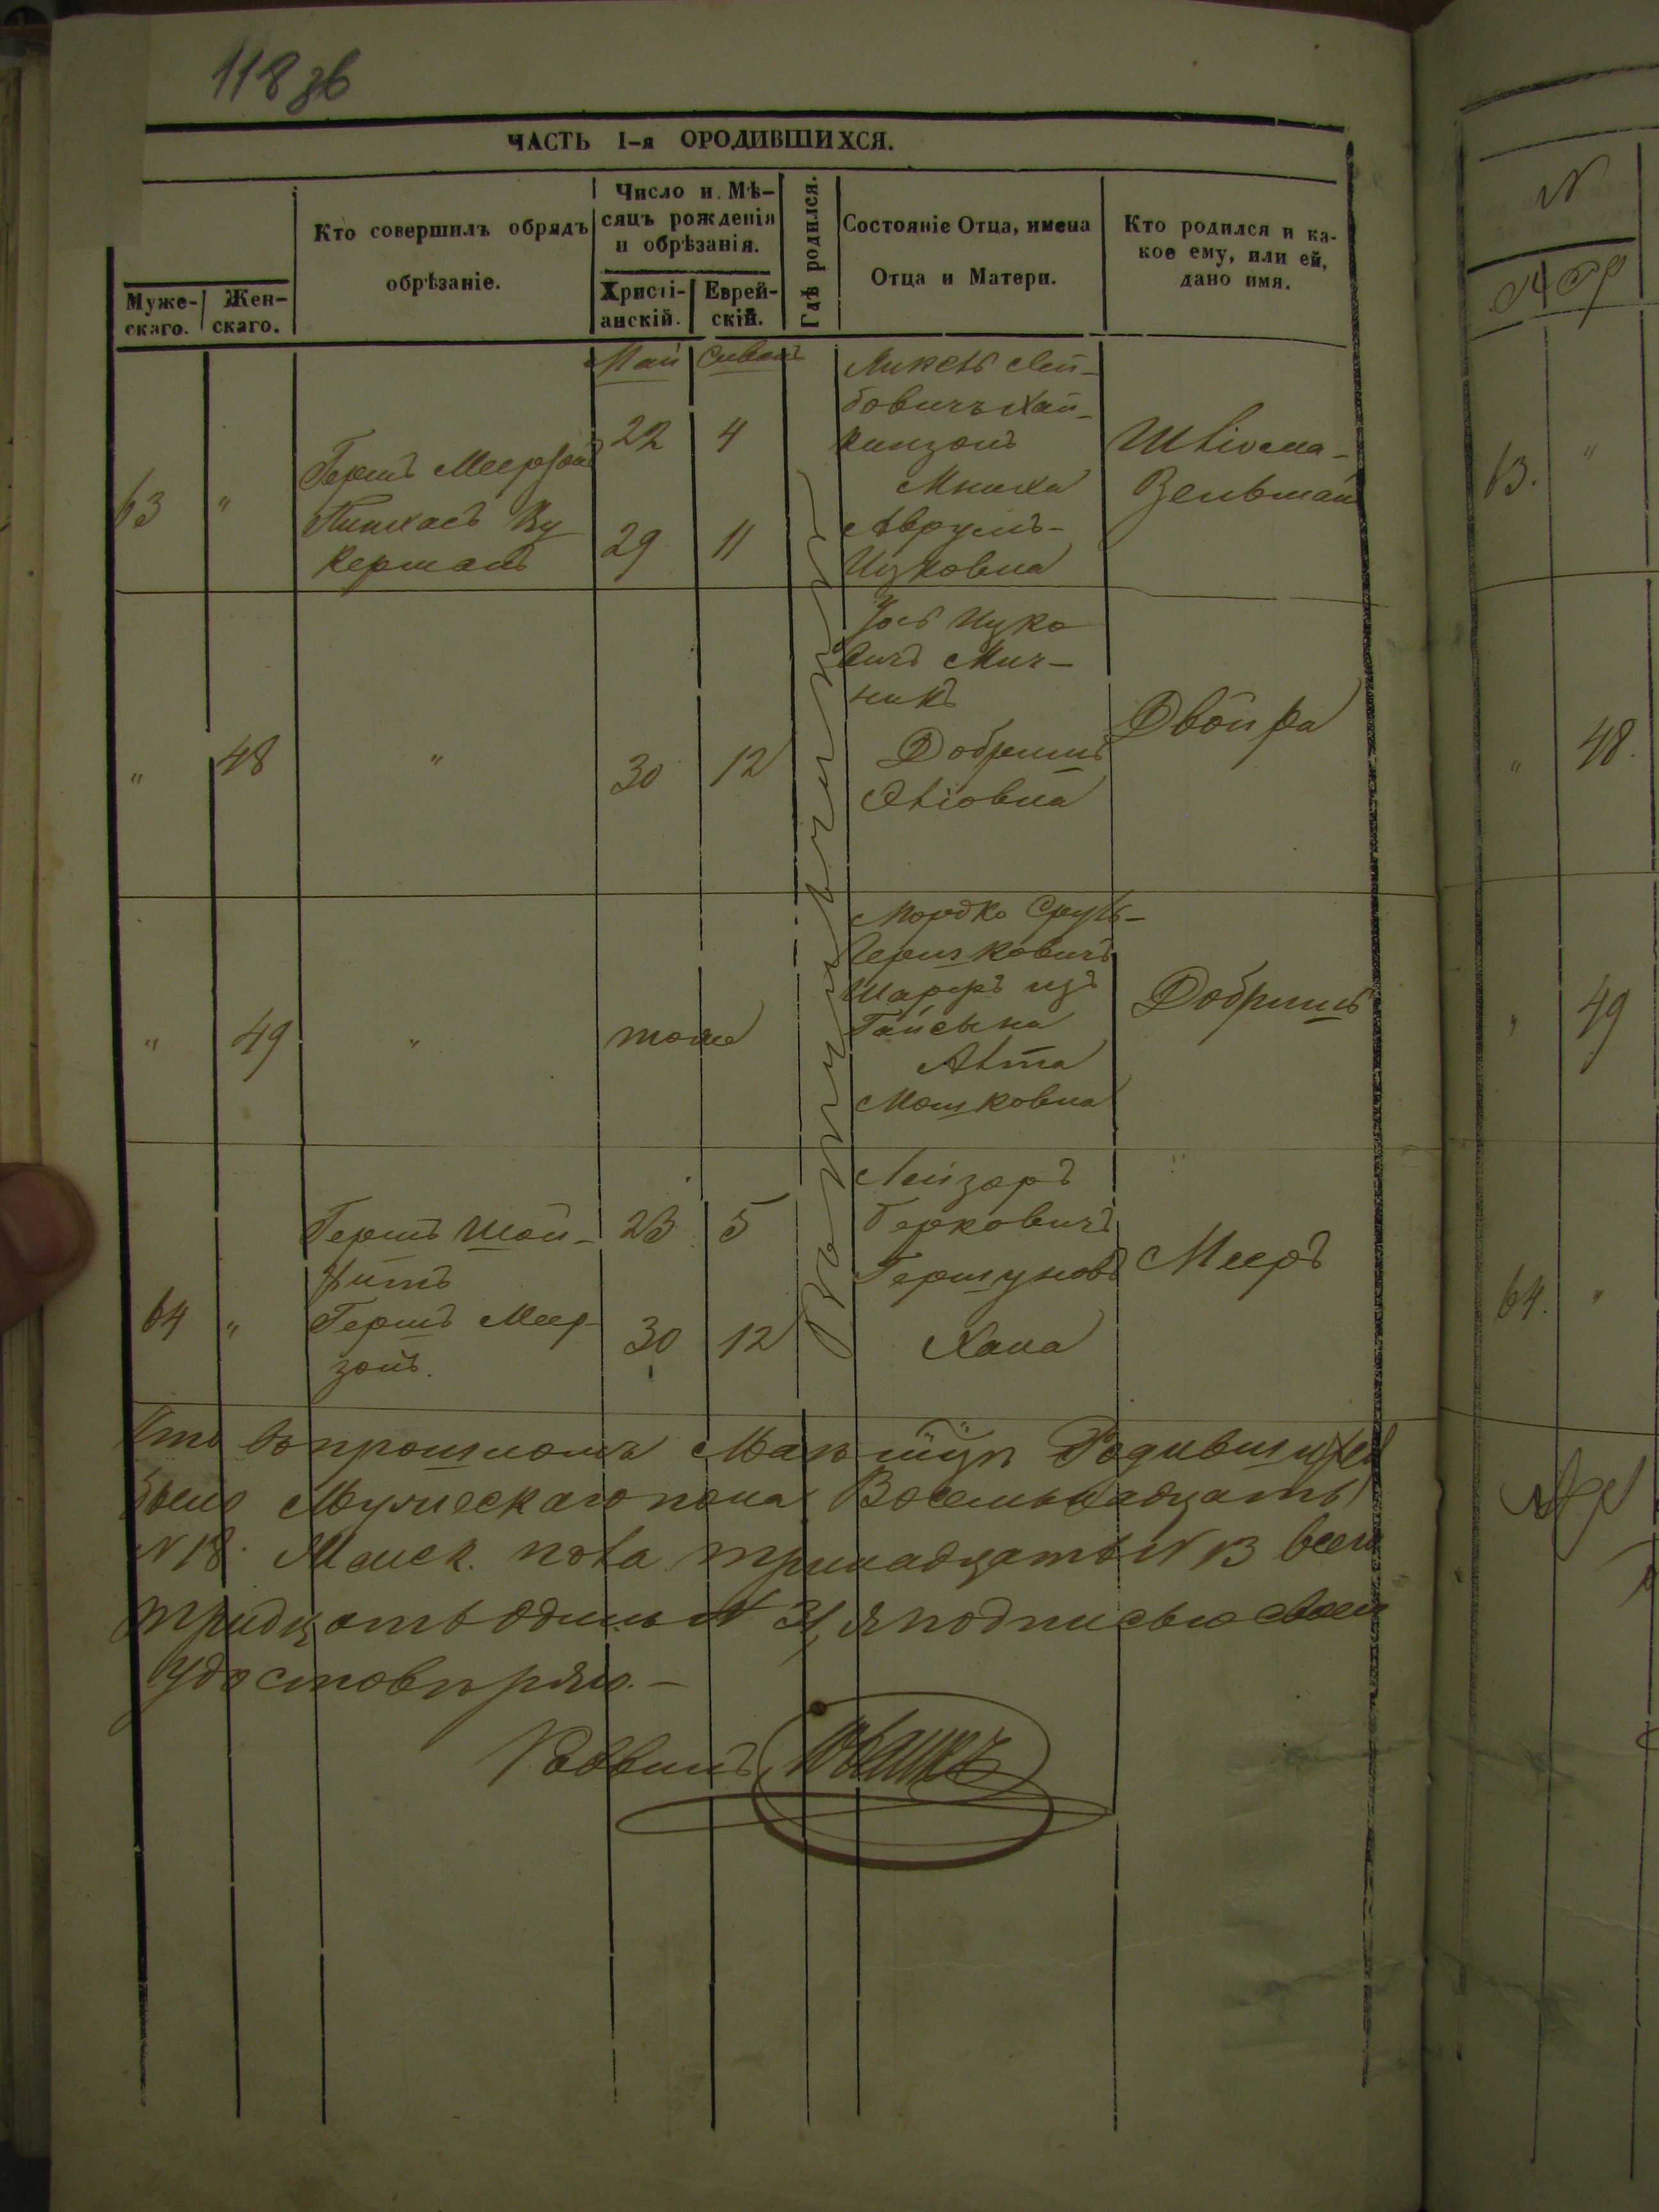 118 зв
ЧАСТЬ I-я ОРОДИВШИХСЯ.
Муже-
скаго.
Жен-
скаго.
Кто совершилъ обрядъ
обрѣзаніе.
Число и Мѣ-
сяцъ рожденія
и обрѣзанія.
Христі-
анскій.
Еврей-
скій.
Гдѣ родился.
Состояніе Отца, имена
Отца и Матери.
Кто родился и ка-
кое ему, или ей,
дано имя.
Май Сиванъ
63 "
Гершъ Меерзонъ
Пинхасъ Ку
керманъ
22 4
29 11
Лей-
бовичъ Хай-
кинзонъ
Аврумъ-
Ицковна
Шліома-
Зельман
" 48 " 30 12
Іось Ицко
вичъ Мич-
никъ
Добришъ
Двойра
" 49 " тоже
Мордко Сруль-
Гершковичъ
изъ
Гайсына
Мошковна
Добришъ
64 "
Гершъ Шой-
хитъ
Гершъ Меер
зонъ.
23 5
30 12
Лейзоръ
Берковичъ
Гершуновъ
Хана
Мееръ
Что въ прошломъ Маѣ Родившихся
было Мужескаго пола Восемьнадцать
N 18. Женск. пола тринадцать N 13 всего
тридцать одинъ N 31, я подписью своею
удостовѣряю.-
Раввинъ
N
63. "
" 48.
" 49
64. "